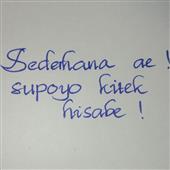 Sederhana ae !
supoyo kitek
hisabe !